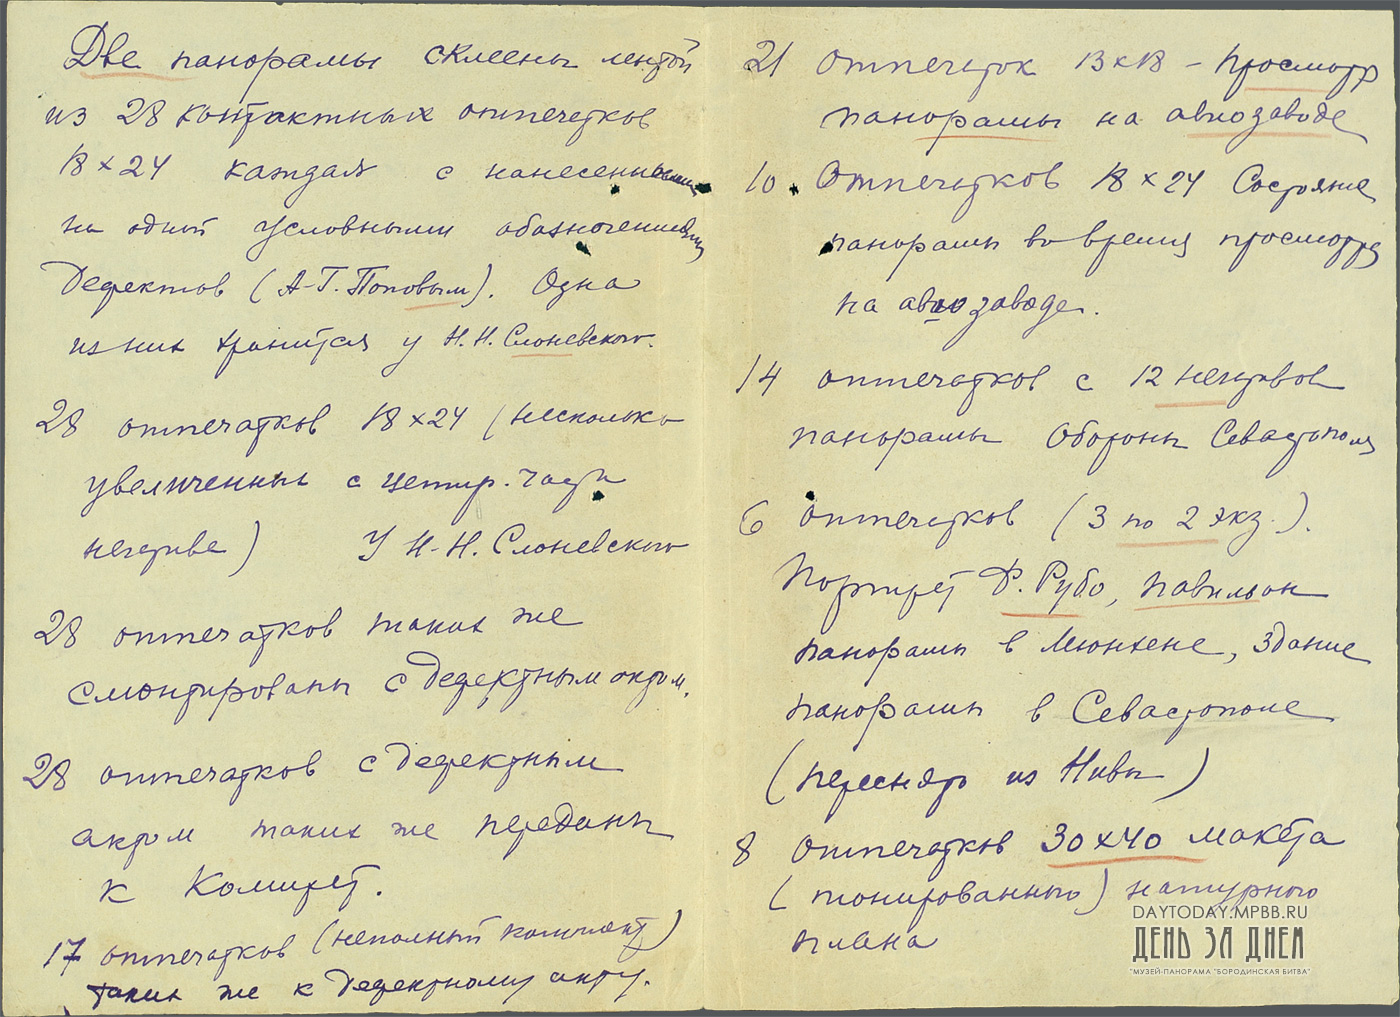 Две панорамы склеены лентой
из 28 контактных отпечатков
18×24 каждая с нанесенными
на одной условными обозначениями
дефектов (А.Г. Поповым). Одна
из них хранится у Н.Н. Слоневского.
28 отпечатков 18×24 (несколько
увеличенных с центр. части
негатива) У Н.Н. Слоневского
28 отпечатков таких же
смонтированы с дефектным актом.
28 отпечатков с дефектным
актом таких же переданы
к Комитет.
17 отпечатков (неполный комплект)
таких же к дефектному акту.
21 отпечаток 13×18 – просмотр
панорамы на авиозаводе
10 Отпечатков 18×24 Состояние
панорамы во время просмотра
на авиозаводе.
14 отпечатков с 12 негативов
панорамы Обороны Севастополя
6 отпечатков (3 по 2 экз.).
Портрет Ф. Рубо, павильон
панорамы в Мюнхене, здание
панорамы в Севастополе
(переснято из Нивы)
8 отпечатков 30×40 макета
(тонированного) натурного
плана
DAYTODAY.MPBB.RU
ДЕНЬ ЗА ДНЕМ
"МУЗЕЙ-ПАНОРАМА "БОРОДИНСКАЯ БИТВА"